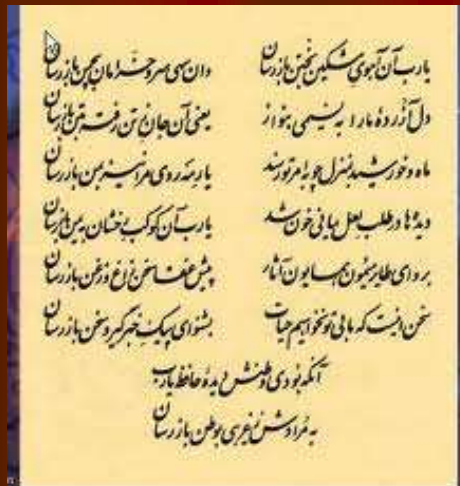 یارب آن آهوی مشکین بختن بازرسان وان سهی سرو خرامان بچمن بازرسان
دل آزردهٔ ما را به نسیمی بنواز یعنی آن جان ز تن رفته بتن بازرسان
ماه و خورشید بمنزل چو به امر تو رسند یار مه روی مرا نیز بمن بازرسان
دیده‌ها در طلب لعل یمانی خون شد یارب آن کوکب رخشان به یمن بازرسان
برو ای طایر میمون همایون آثار پیش عنقا سخن زاغ و زغن بازرسان
سخن اینست که ما بی تو نخواهیم حیات بشنو ای پیک خبرگیر و سخن بازرسان
آنکه بودی وطنش دیدهٔ حافظ یارب
به مرادش ز غریبی بوطن بازرسان